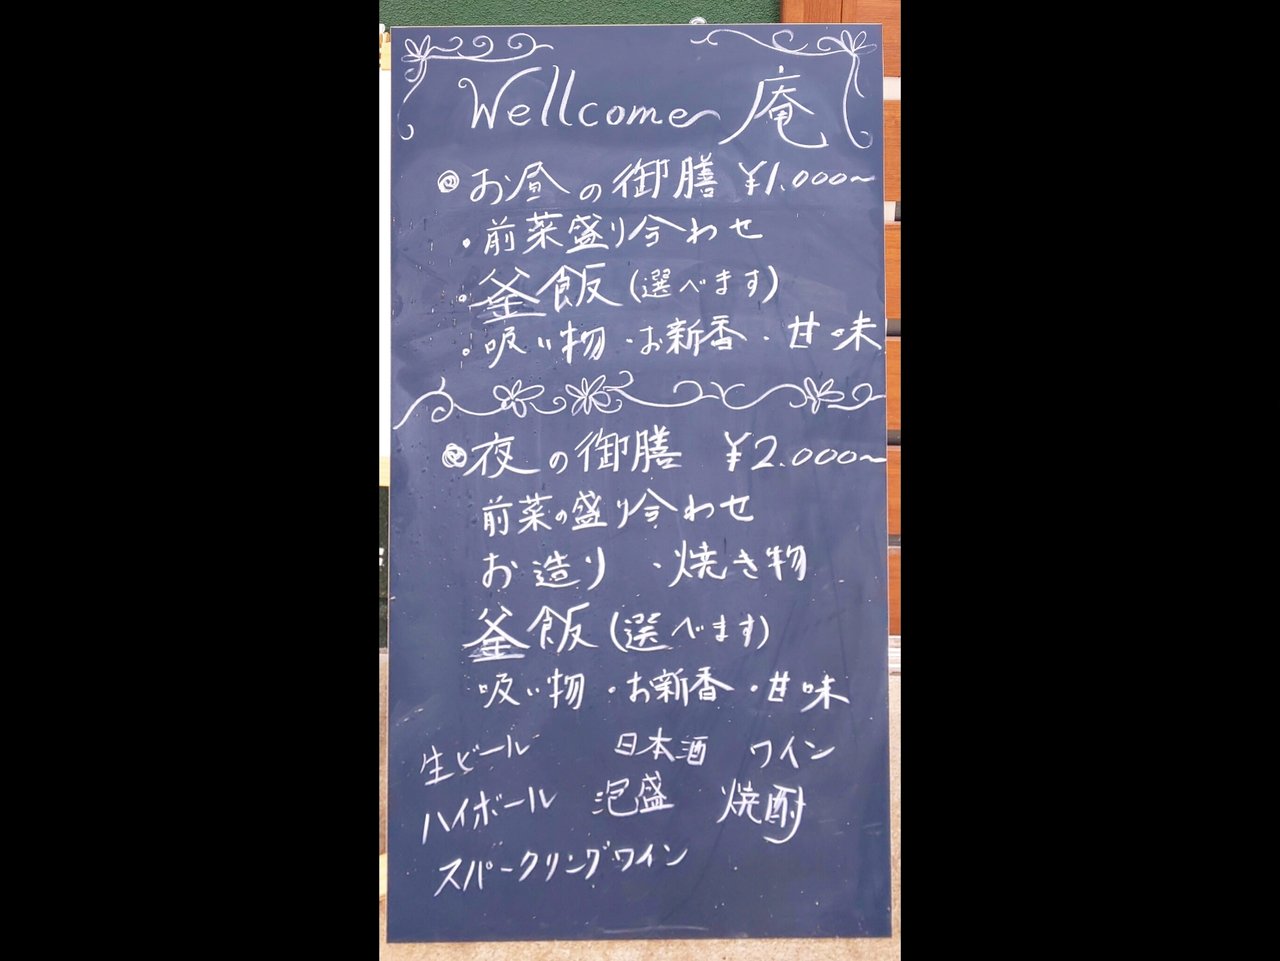 Wellcome 庵
◎お昼の御膳 ¥1.000~
・前菜盛り合わせ
・釜飯(選べます)
・吸い物・お新香・甘味
◎夜の御膳 ¥2.000~
前菜の盛り合わせ
お造り ・焼き物
釜飯(選べます)
吸い物・お新香・甘味
生ビール 日本酒 ワイン
ハイボール 泡盛 焼酎
スパークリングワイン